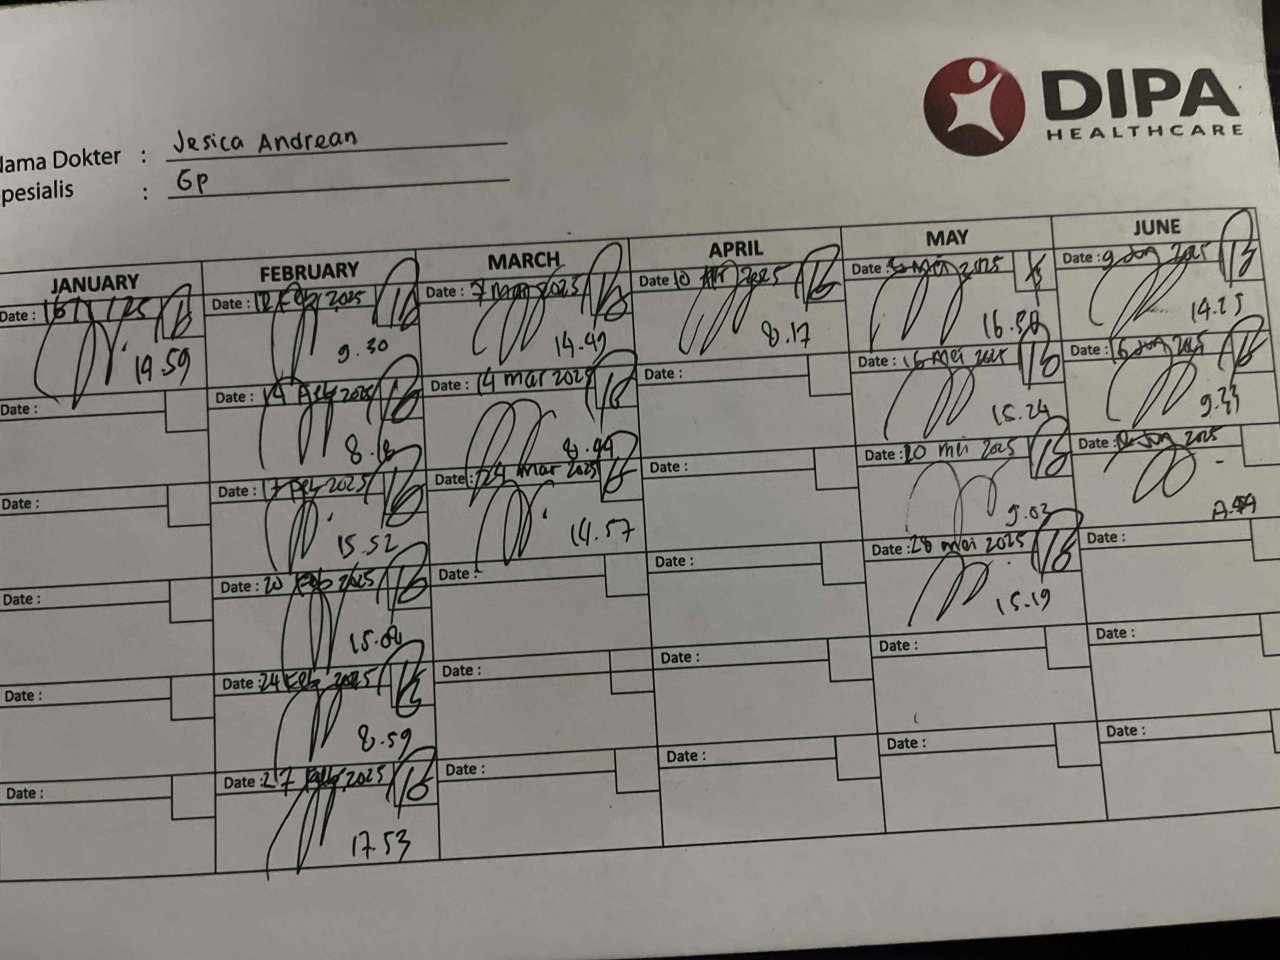 DIPA
HEALTHCARE
Nama Dokter : Jesica Andrean
Spesialis : Gp
JANUARY FEBRUARY MARCH APRIL MAY JUNE
Date : 16/1/25
19.59
Date :
Date :
Date :
Date :
Date :
Date : 12 Feb 2025
9.30
Date : 14 Feb 2025
8.18
Date : 17 Feb 2025
15.52
Date : 20 Feb 2025
15.04
Date : 24 Feb 2025
8.59
Date : 27 Feb 2025
17.53
Date : 7 Mar 2025
14.49
Date : 14 mar 2025
8.44
Date : 24 mar 2025
14.57
Date :
Date :
Date :
Date : 10 Apr 2025
8.17
Date :
Date :
Date :
Date :
Date :
Date : Mei 2025
Date : 16 Mei 2025
15.24
Date : 20 mei 2025
9.02
Date : 28 mei 2025
15.19
Date :
Date :
Date : 9 Jun 2025
Date : 16 Jun 2025
9.33
Date : Jun 2025
Date :
Date :
Date :